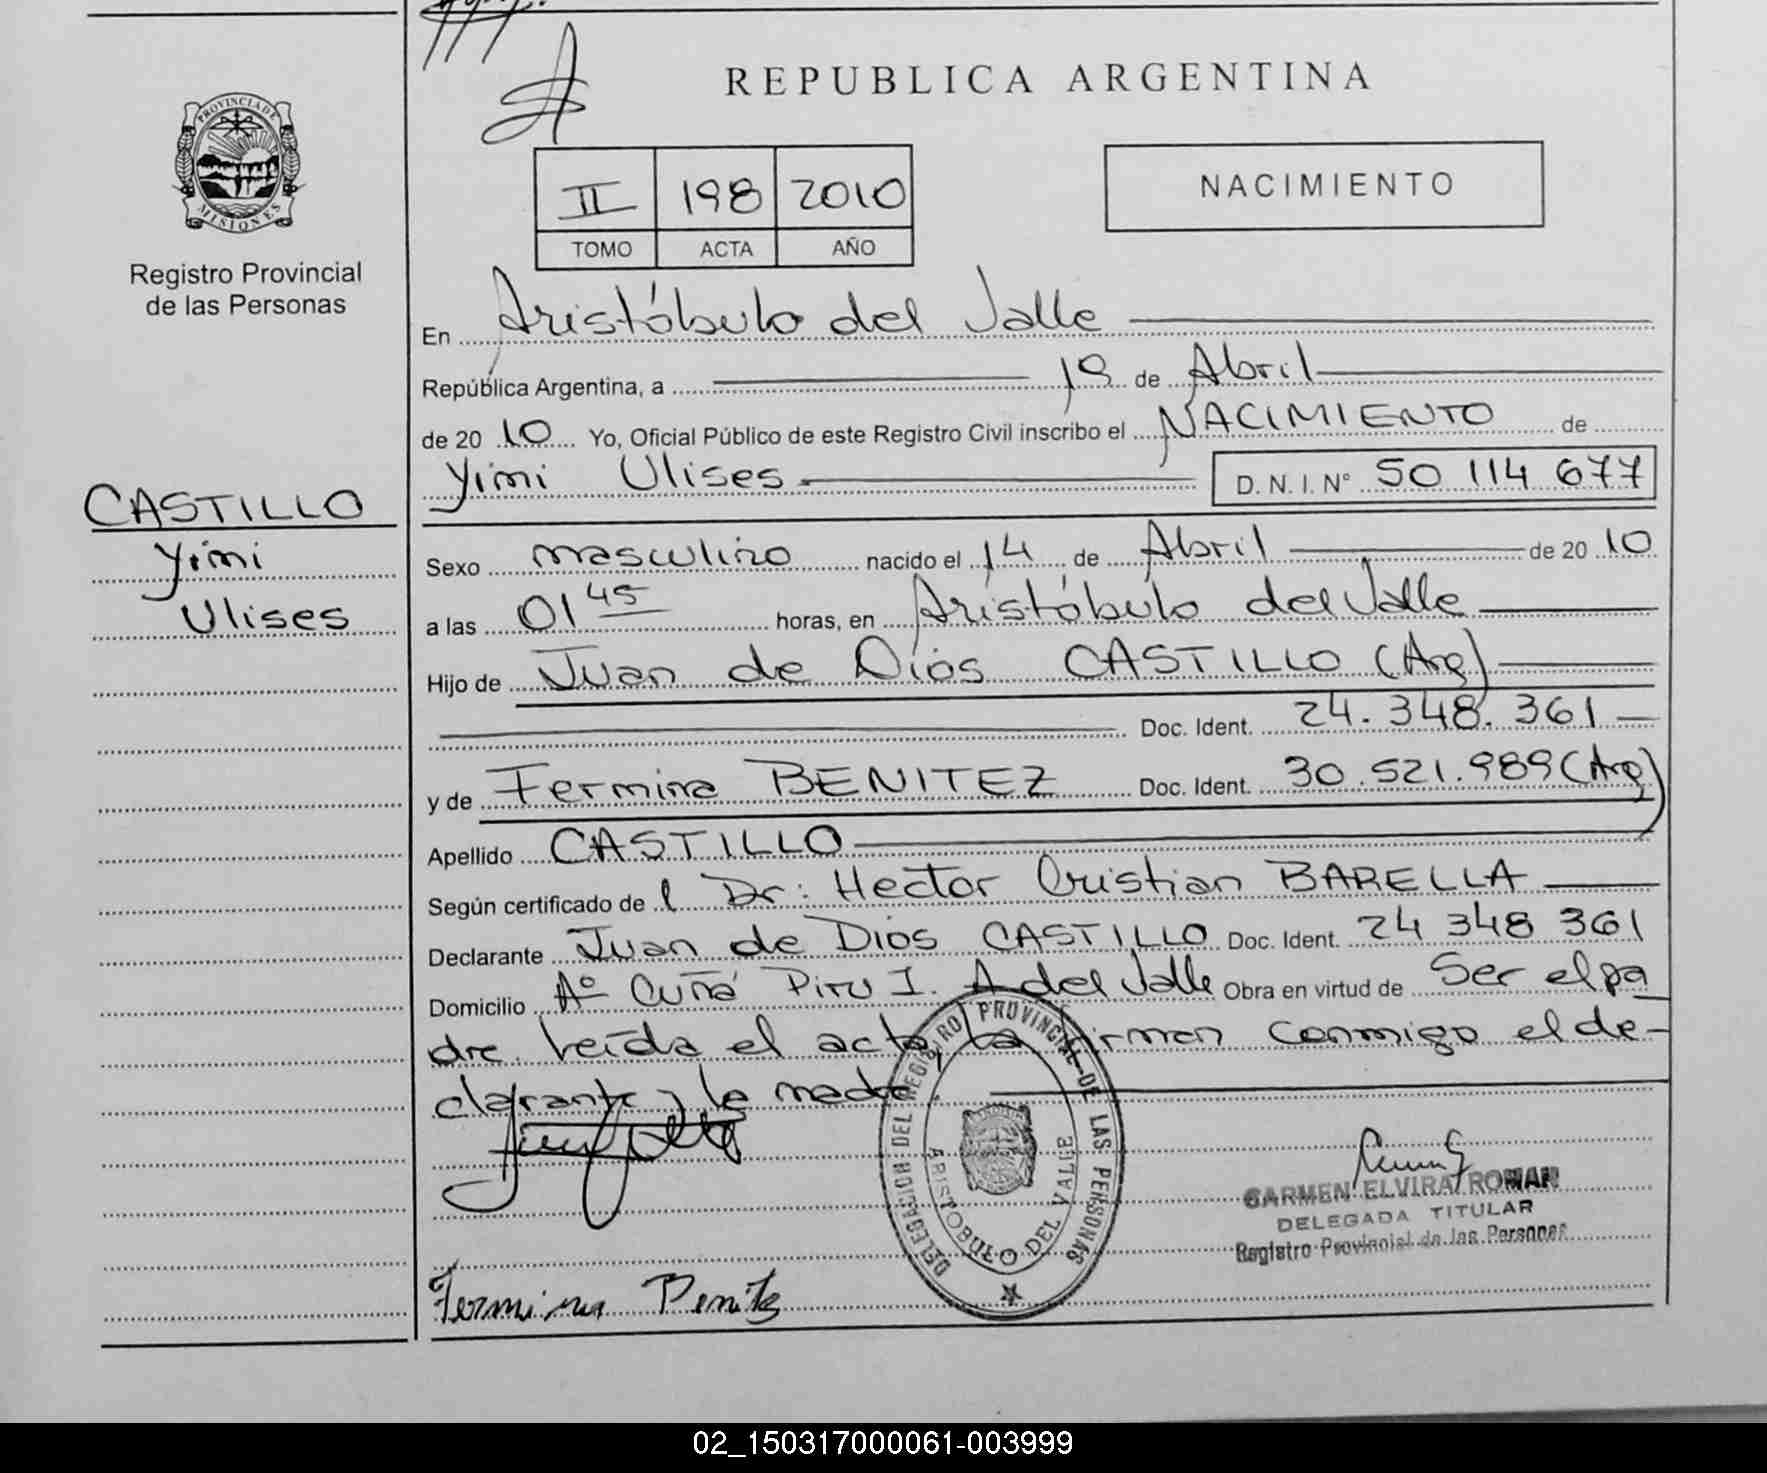 REPUBLICA ARGENTINA
PROVINCIA DE
MISIONES
Registro Provincial
de las Personas
II 198 2010
TOMO ACTA AÑO
NACIMIENTO
En Aristóbulo del Valle
República Argentina, a 19 de Abril
de 2010 Yo, Oficial Público de este Registro Civil inscribo el NACIMIENTO de
Yimi Ulises D. N. I. N° 50 114 677
CASTILLO
Yimi
Ulises
Sexo masculino nacido el 14 de Abril de 2010
a las 01 45 horas, en Aristóbulo del Valle
Hijo de Juan de Dios CASTILLO (Arg)
Doc. Ident. 24.348.361
y de Fermina BENITEZ Doc. Ident. 30.521.989 (Arg)
Apellido CASTILLO
Según certificado de l Dr: Hector Cristian BARELLA
Declarante Juan de Dios CASTILLO Doc. Ident. 24 348 361
Domicilio Aº Cuñá Pirú I. A del Valle Obra en virtud de Ser el pa
dre. Leída el acta, la firman conmigo el de-
clarante y la madre.
DELEGACION DEL REGISTRO PROVINCIAL DE LAS PERSONAS
ARISTOBULO DEL VALLE
CARMEN ELVIRA ROMAN
DELEGADA TITULAR
Registro Provincial de las Personas
Fermina Benitez
02_150317000061-003999